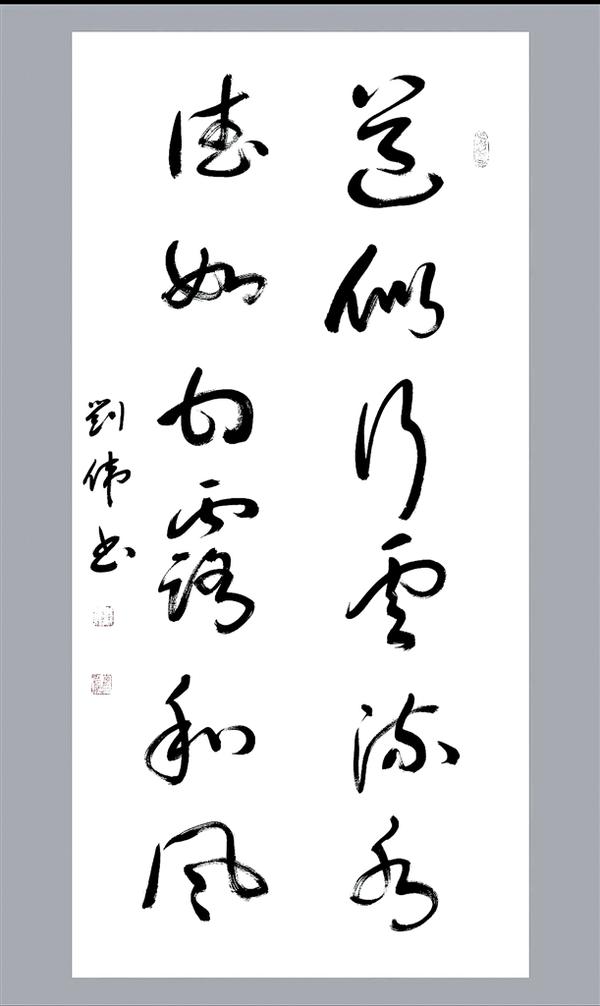 道似行雲流水
德如甘露和風
劉偉书